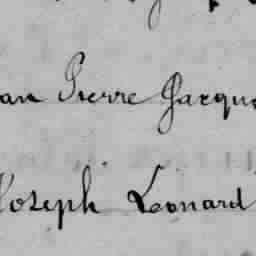 an Pierre Jacqu
Joseph Leonard